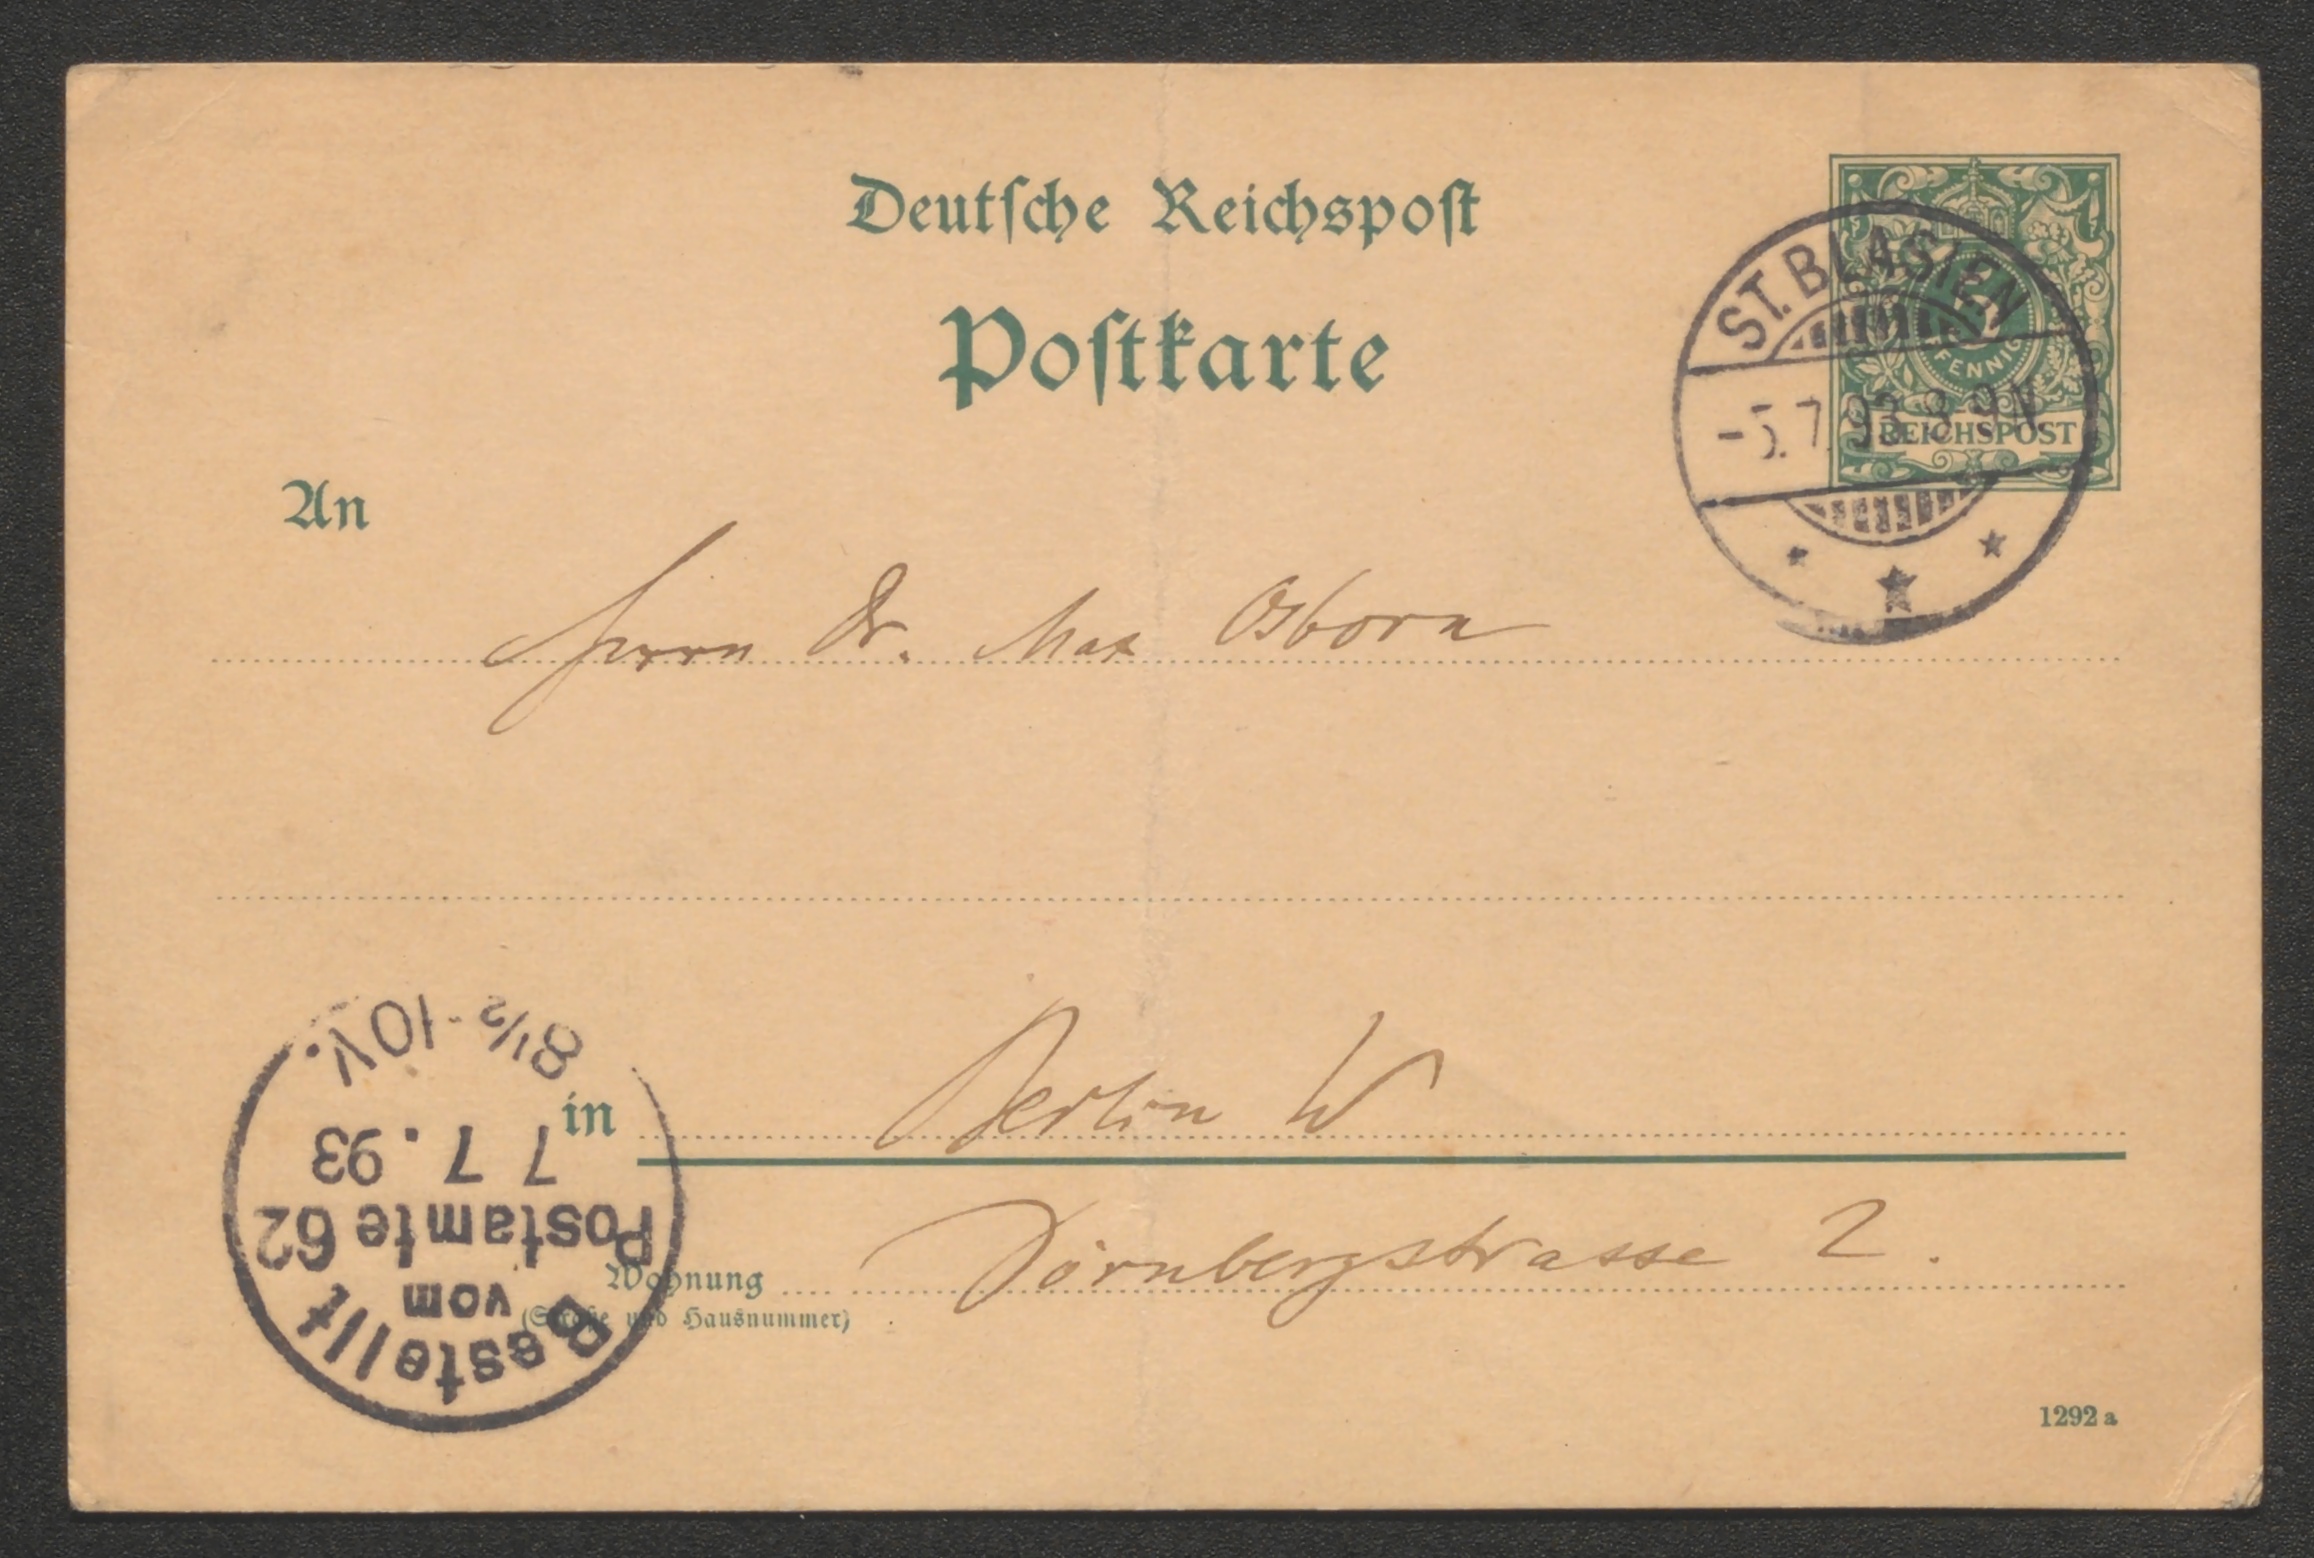 Deutsche Reichspost
Postkarte
5
PFENNIG
REICHSPOST
ST. BLASIEN
-5.7.93.8-9N
An
Herrn Dr. Max Osborn
in Berlin W
Wohnung Dörnbergstrasse 2.
(Straße und Hausnummer)
Bestellt
vom
Postamte 62
7 7.93
8½-10V.
1292 a